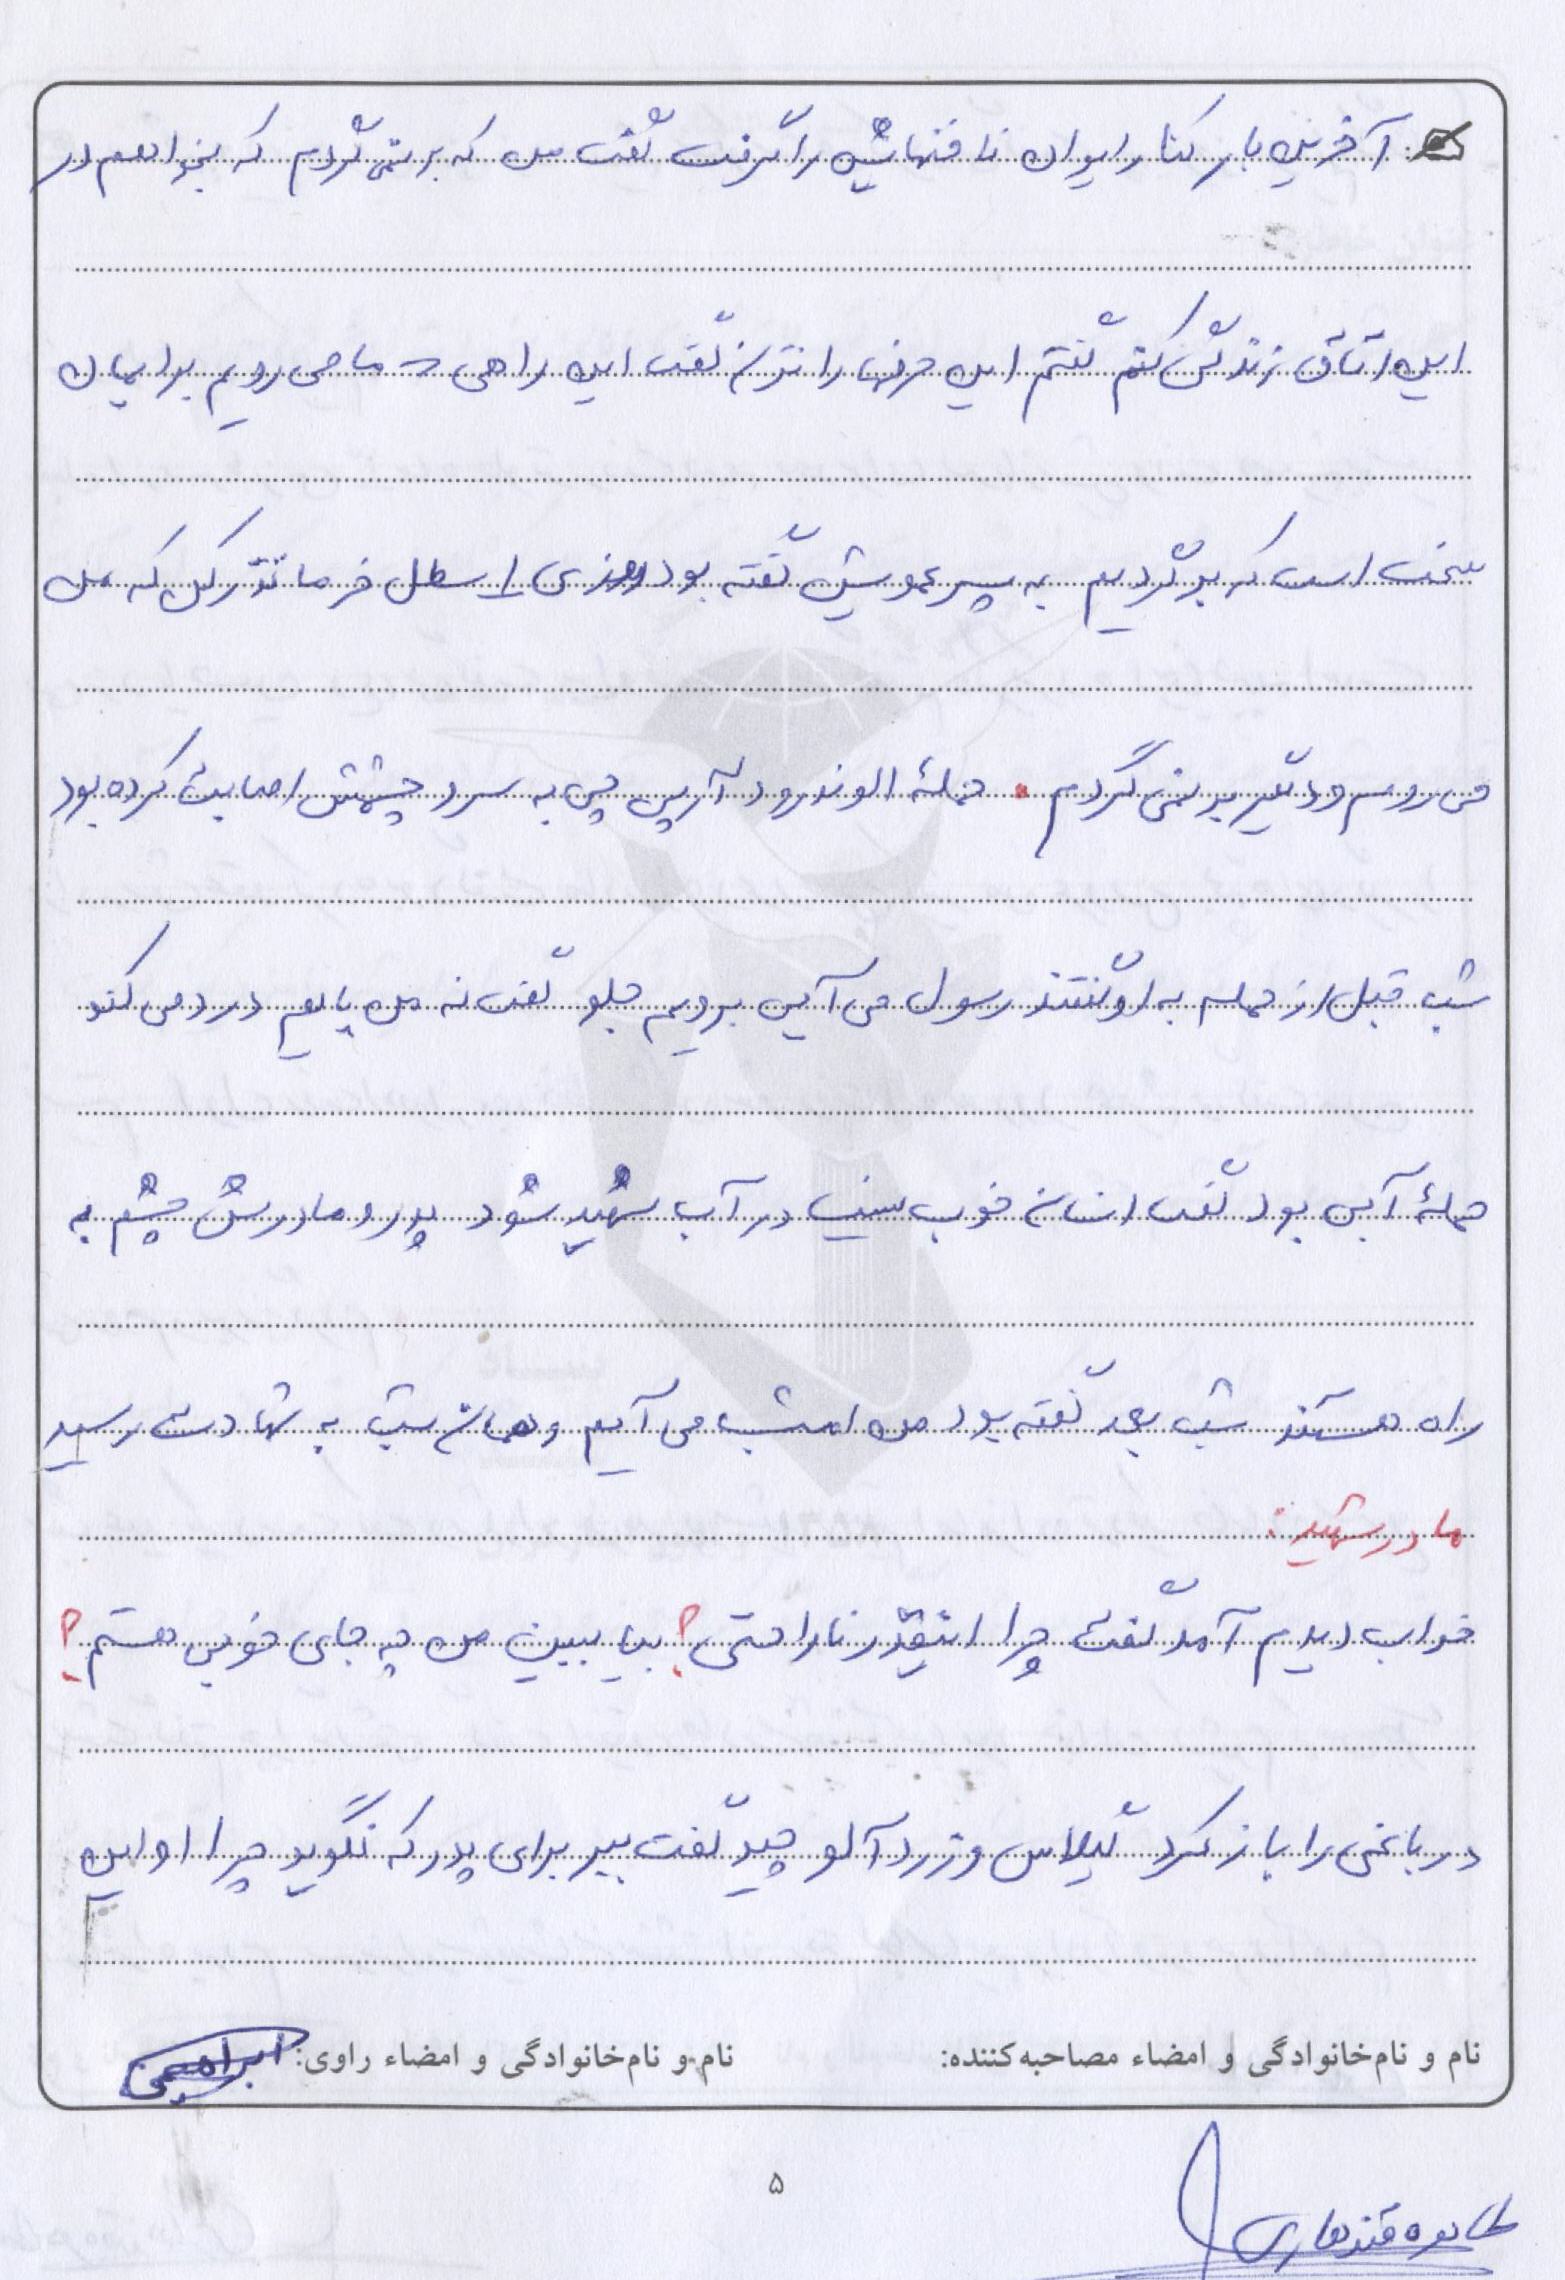 آخرین بار کنار ایوان ناخنهایش را گرفت گفت من که بر نمی گردم که بخواهم در
این اتاق زندگی کنم گفتم این حرفها را نزن گفت این راهی که ما می رویم برایمان
سخت است که برگردیم به پسر عمویش گفته بود روزی ۱ سطل خرما نذر کن که من
می روم و دیگر بر نمی گردم. حملهٔ الوند رود آرپی چی به سر و چشمش اصابت کرده بود
شب قبل از حمله به او گفتند رسول می آیی برویم جلو گفت نه من پایم درد می کند
حملهٔ آبی بود گفت انسان خوب نیست در آب شهید شود پدر و مادرش چشم به
راه هستند شب بعد گفته بود من امشب می آیم و همان شب به شهادت رسید
مادر شهید:
خواب دیدم آمد گفت چرا اینقدر ناراحتی؟ بیا ببین من چه جای خوبی هستم؟
در باغی را باز کرد گیلاس و زردآلو چید گفت ببر برای پدر که نگوید چرا او این
نام و نام‌خانوادگی و امضاء مصاحبه‌کننده:
نام و نام‌خانوادگی و امضاء راوی: ابراهیمی
۵
طاهره قندهاری